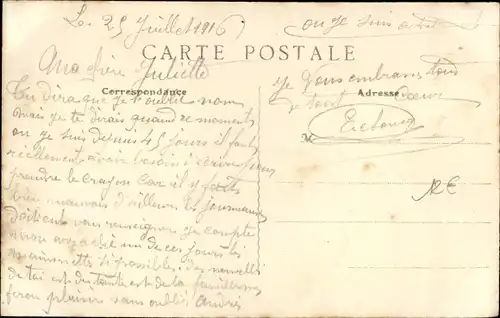 Le 25 Juillet 1916
CARTE POSTALE
Correspondance
Adresse
Ma Juliette
Tu dira que je t'oublie non
mais je te dirais quand ce moment
ou je suis depuis 45 jours il faut
réellement avoir besoin d'écrire pour
prendre le crayon car il y fait
bien mauvais d'ailleurs les journaux
doivent vous renseigner je compte
un de ces jours
si possible des nouvelles
de toi et de toute la famille
feron plaisirs sans oublié André
ou je suis
je vous embrasse tous
de tout cœur
M
12€